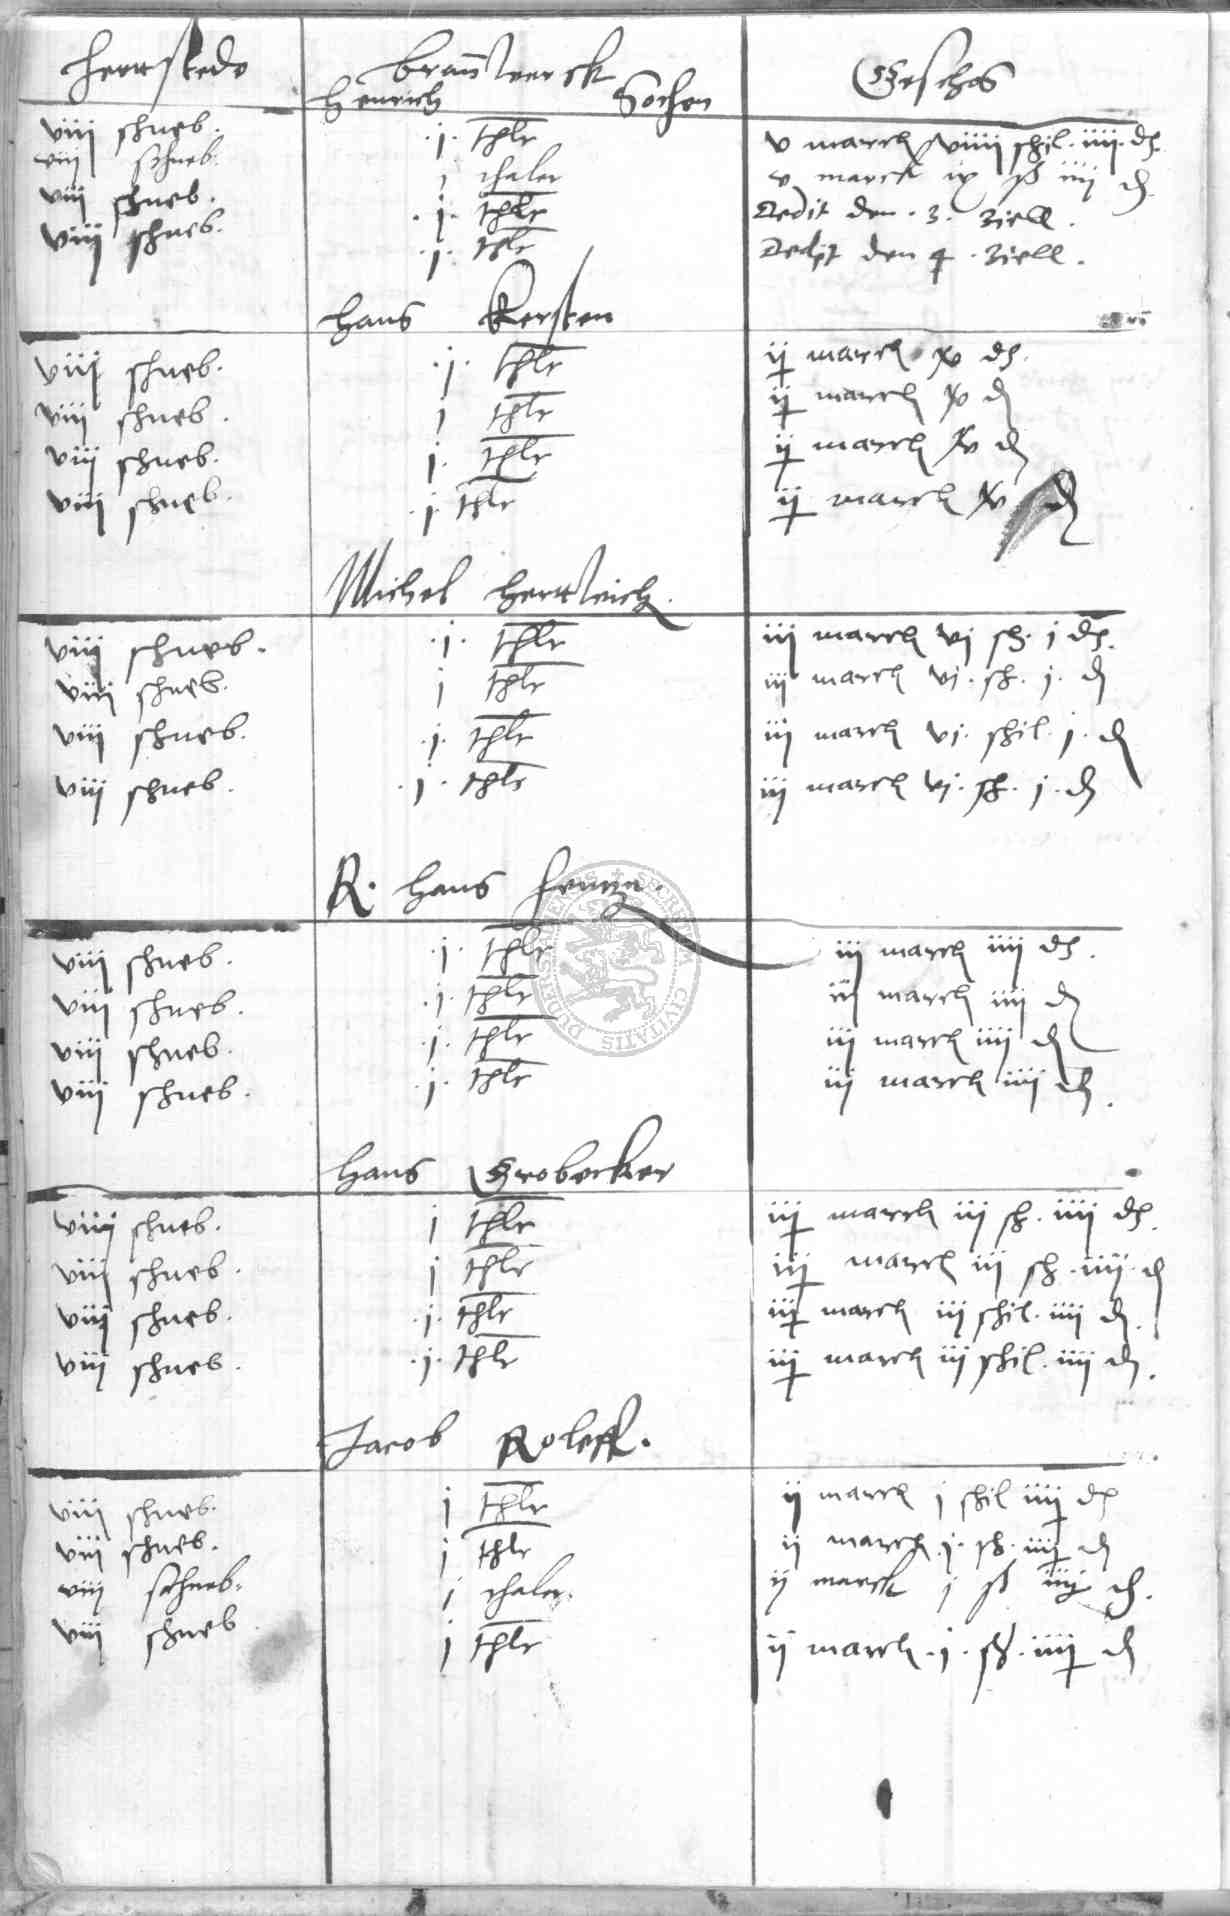 herttstedt brauwerck Geschos
Henrich Sochen
viij schneb. .j. thlr v marck viiij schil. iiij. d.
viij schneb. j thaler v marck ix ß iiij d.
viij schneb. .j. thlr Dedit den .3. Ziell.
viij schneb. .j. thlr Dedit den 4. Ziell.
Hans Kersten
viij schneb. .j. thlr ij marck xv d.
viij schneb. j thlr ij marck xv d
viij schneb. j. thlr ij marck xv d
viij schneb. .j thlr ij marck xv d
Michel Herttwich.
viij schneb. .j. thlr iij marck vj sh. j d.
viij schneb. j thlr iij marck vj. sh. j. d
viij schneb. .j. thlr iij marck vj. schil. j. d
viij schneb. .j. thlr iij marck vj. sh. j. d
R. Hans
viij schneb. .j. thlr iij marck iiij d.
viij schneb. .j. thlr iij marck iiij d
viij schneb. .j. thlr iij marck iiij d
viij schneb. .j. thlr iij marck iiij d.
Hans Grobecker
viij schneb. j thlr iij marck iij sh. iiij d.
viij schneb. j thlr iij marck iij sh. iiij. d
viij schneb. .j. thlr iij marck iij schil. iiij d.
viij schneb. .j. thlr iij marck iij schil. iiij d.
Jacob Roleff.
viij schneb. j thlr ij marck j schil iiij d
viij schneb. j thlr ij marck .j. sh. iiij d
viij schneb. j thaler. ij marck j ß iiij d.
viij schneb j thlr ij marck .j. sh. iiij d
SECRETUM CIVITATIS